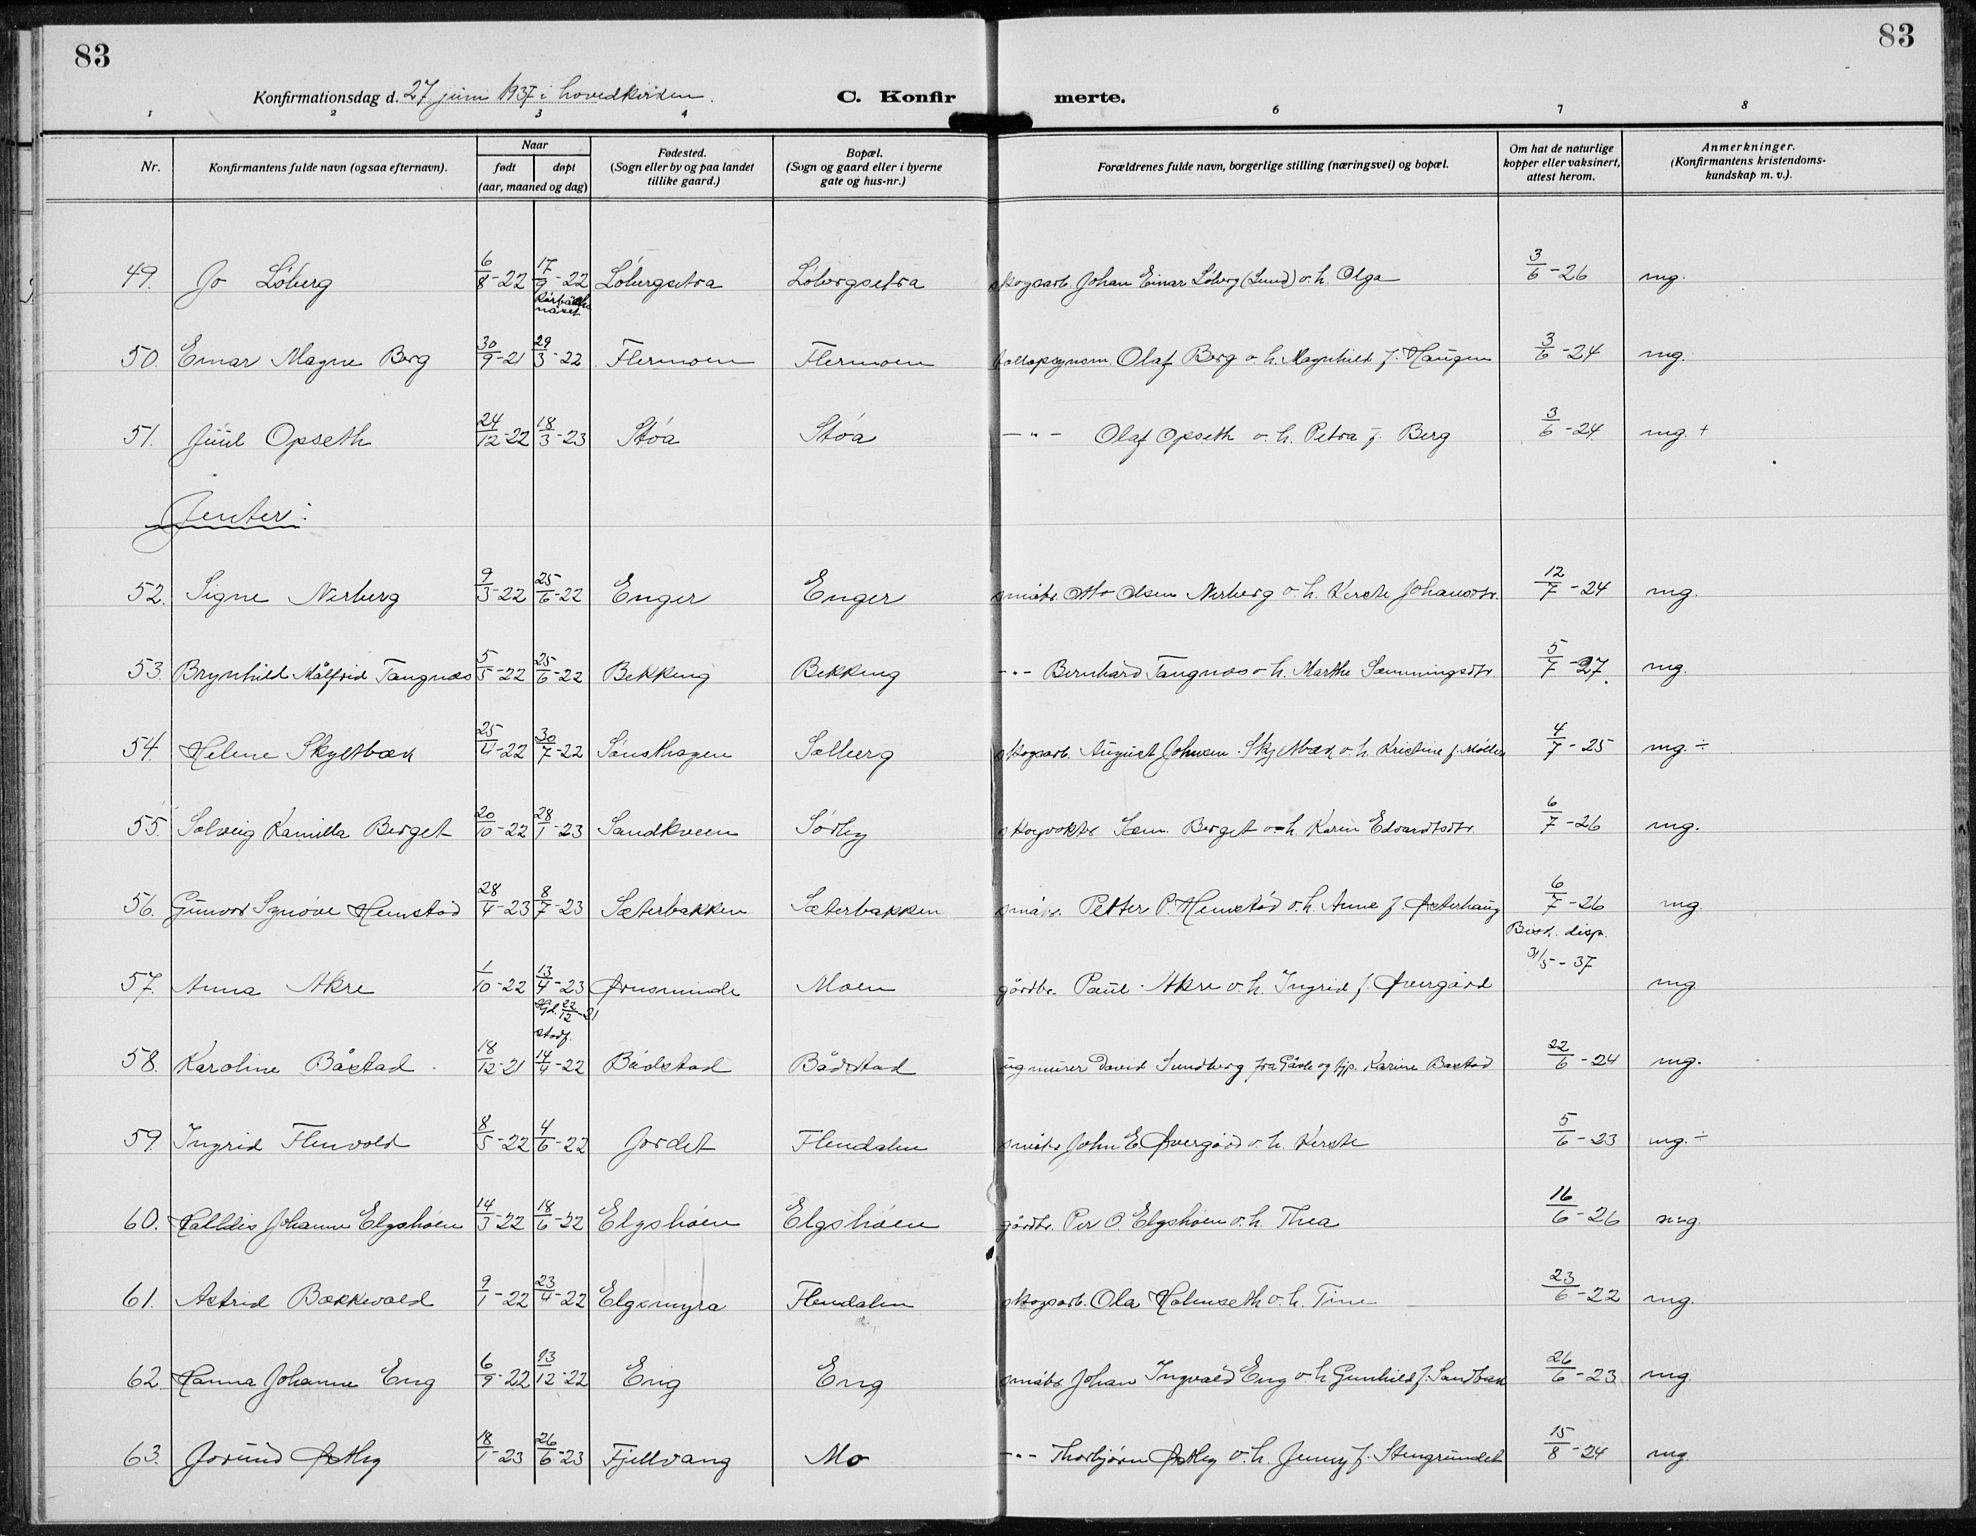 83
83
Konfirmationsdag d. 27 juni 1937 i hovedkirken.
C. Konfir merte.
1 2 3 4 6 7 8
Nr.
Konfirmantens fulde navn (ogsaa efternavn).
Naar
født døpt
(aar, maaned og dag)
Fødested.
(Sogn eller by og paa landet
tillike gaard.)
Bopæl.
(Sogn og gaard eller i byerne
gate og hus-nr.)
Forældrenes fulde navn, borgerlige stilling (næringsvei) og bopæl.
Om hat de naturlige
kopper eller vaksinert,
attest herom.
Anmerkninger.
(Konfirmantens kristendoms-
kundskap m. v.).
49. Jo Løberg 6/8-22 17/9-22 Løbergsetra Løbergsetra skogsarb. Johan Einar Løberg (Lund) o. h. Olga 3/6-26 mg.
50. Einar Magne Berg 30/9-21 29/3-22 Flermoen Flermoen tollopsynsm. Olaf Berg o. h. Magnhild f. Haugen 3/6-24 mg.
51. Juul Opseth 24/12-22 18/3-23 Støa Støa -"- Olaf Opseth o. h. Petra f. Berg 3/6-24 mg. +
Jenter:
52. Signe Nerberg 9/3-22 25/6-22 Enger Enger småbr. Otto Olsen Nerberg o. h. Kerste Johansdtr. 12/7-24 mg.
53. Brynhild Målfrid Tangnæs 5/5-22 25/6-22 Bekking Bekking -"- Bernhard Tangnæs o. h. Marthe Sæmmingsdtr. 5/7-27. mg.
54. Helene Skyltbæk 25/4-22 30/7-22 Sønsthagen Solberg skogsarb. August Johnsen Skjeltbæk o. h. Kristine f. Møller 4/7-25 mg. ÷
55. Solveig Kamilla Berget 20/10-22 28/1-23 Sandkveen Sørby skogvokter Sæm. Berget o. h. Karin Edvardtsdtr. 6/7-26 mg.
56. Gunvor Synøve Hemstad 28/4-23 8/7-23 Sæterbakken Sæterbakken småbr. Petter P. Hemstad o. h. Anne f. Østerhaug 6/7-26 mg.
Bisk. disp.
31/5-37
57. Anna Akre 1/10-22 13/4-23 Ørnsminde Moen gårdbr. Paul Akre o. h. Ingrid f. Øvergård mg
22/12-21
stadf.
58. Karoline Båstad 18/12-21 14/4-22 Bådstad Bådstad ugmurer David Sundberg fra Gävle og pp. Karine Bastad 22/6-24 mg.
59. Ingrid Flenvold 8/5-22 4/6-22 Jordet Flendalen småbr John E. Øvergård o. h. Kerste 5/6-23 mg. ÷
60. Halldis Johanne Elgshøen 14/3-22 18/6-22 Elgshøen Elgshøen gårdbr. Per O. Elgshøen o. h. Thea 16/6-26 mg.
61. Astrid Bækkevold 9/1-22 23/4-22 Elgsmyra Flendalen skogsarb. Ola Holmseth o. h. Tine 23/6-22 mg.
62. Hanna Johanne Eng 6/9-22 13/12-22 Eng Eng småbr. Johan Ingvald Eng o. h. Gunhild f. Sandbæk 26/6-23 mg.
63. Jorund Østby 18/1-23 26/6-23 Fjellvang Mo -"- Thorbjørn Østby o. h. Jenny f. Stengrundet 15/8-24 mg.